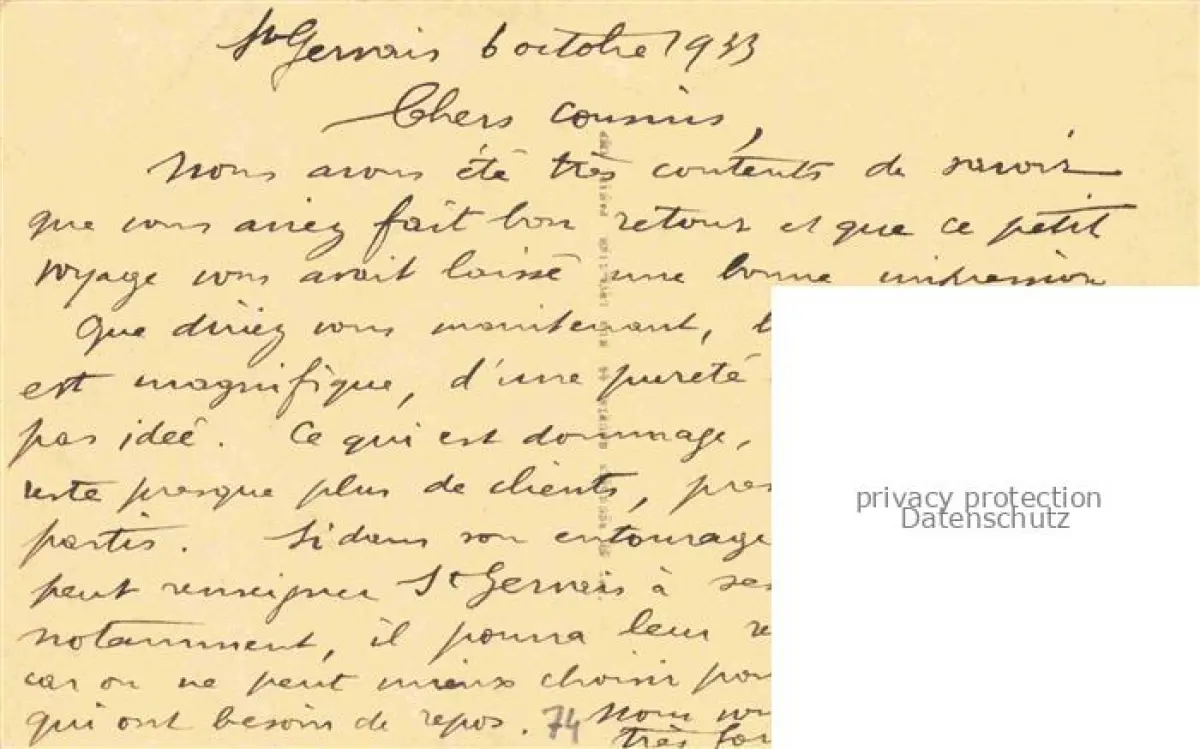 St Gervais 6 octobre 1933
Chers cousins,
Nous avons été très contents de savoir
que vous aviez fait bon retour et que ce petit
voyage vous avait laissé une bonne impression
Que diriez vous maintenant,
est magnifique, d'une pureté
pas ideé. Ce qui est dommage,
reste presque plus de clients, pres
partis. Si dans son entourage
peut renseigner St Gervais à ses
notamment, il pourra leur re
car on ne peut mieux choisir pour
qui ont besoin de repos. 74 Nous vou
très for
privacy protection
Datenschutz